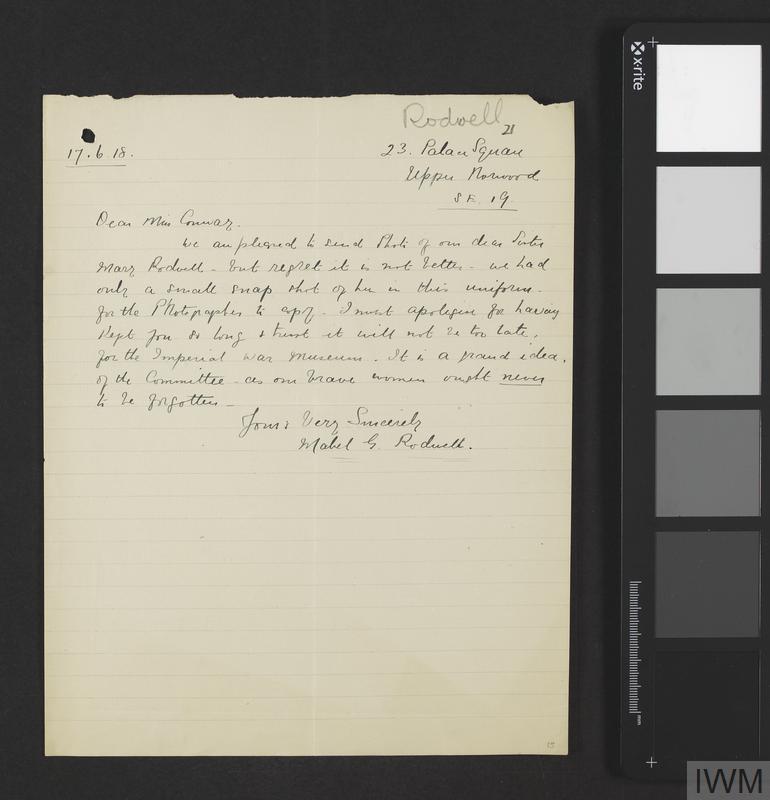 Rodwell
21
17.6.18.
23. Palace Square
Upper Norwood
S.E. 19.
Dear Miss Conway.
We are pleased to send Photo of our dear Sister
Mary Rodwell - but regret it is not better - we had
only a small snap shot of her in this uniform -
for the Photographer to copy. I must apologise for having
kept you so long & trust it will not be too late,
for the Imperial War Museum. It is a grand idea,
of the Committee - as our brave women ought never
to be forgotten -
Yours Very Sincerely
Mabel G. Rodwell.
x-rite
mm
IWM